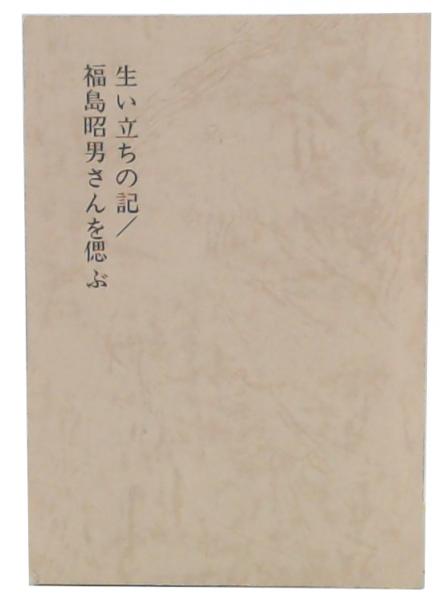 生い立ちの記／
福島昭男さんを偲ぶ